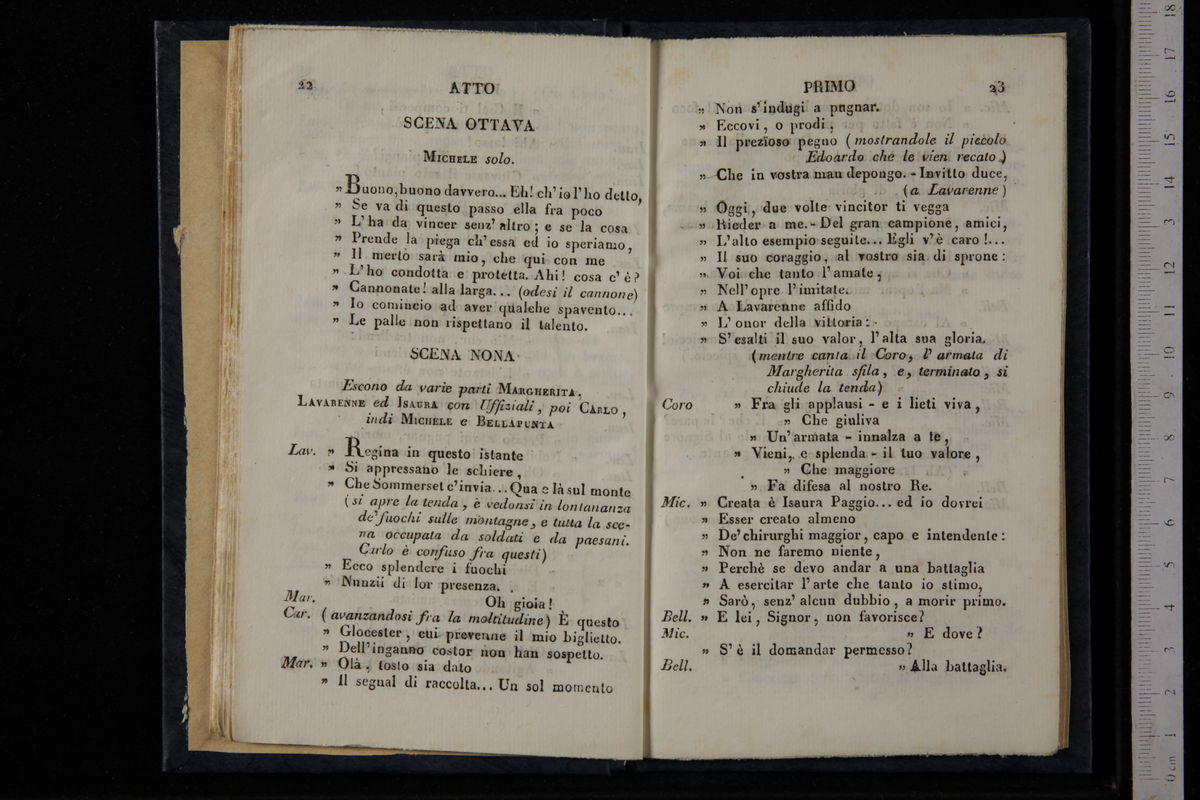 22 ATTO
SCENA OTTAVA
MICHELE solo.
„ Buono, buono davvero... Eh! ch' io l' ho detto,
„ Se va di questo passo ella fra poco
„ L' ha da vincer senz' altro; e se la cosa
„ Prende la piega ch' essa ed io speriamo,
„ Il merto sarà mio, che qui con me
„ L' ho condotta e protetta. Ahi! cosa c' è?
„ Cannonate! alla larga... (odesi il cannone)
„ Io comincio ad aver qualche spavento...
„ Le palle non rispettano il talento.
SCENA NONA
Escono da varie parti MARGHERITA,
LAVARENNE ed ISAURA con Uffiziali, poi CARLO,
indi MICHELE e BELLAPUNTA
Lav. „ Regina in questo istante
„ Si appressano le schiere,
„ Che Sommerset c' invia... Qua e là sul monte
(si apre la tenda, e vedonsi in lontananza
de' fuochi sulle montagne, e tutta la sce-
na occupata da soldati e da paesani.
Carlo è confuso fra questi)
„ Ecco splendere i fuochi
„ Nunzii di lor presenza.
Mar. Oh gioia!
Car. (avanzandosi fra la moltitudine) È questo
„ Glocester, cui prevenne il mio biglietto.
„ Dell' inganno costor non han sospetto.
Mar. „ Olà, tosto sia dato
„ Il segnal di raccolta... Un sol momento
PRIMO 23
„ Non s' indugi a pugnar.
„ Eccovi, o prodi,
„ Il prezïoso pegno (mostrandole il piccolo
Edoardo che le vien recato)
„ Che in vostra man depongo. - Invitto duce,
(a Lavarenne)
„ Oggi, due volte vincitor ti vegga
„ Rieder a me. - Del gran campione, amici,
„ L' alto esempio seguite... Egli v' è caro!...
„ Il suo coraggio, al vostro sia di sprone:
„ Voi che tanto l' amate,
„ Nell' opre l' imitate.
„ A Lavarenne affido
„ L' onor della vittoria:
„ S' esalti il suo valor, l' alta sua gloria.
(mentre canta il Coro, l' armata di
Margherita sfila, e, terminato, si
chiude la tenda)
Coro „ Fra gli applausi - e i lieti viva,
„ Che giuliva
„ Un' armata - innalza a te,
„ Vieni, e splenda - il tuo valore,
„ Che maggiore
„ Fa difesa al nostro Re.
Mic. „ Creata è Isaura Paggio... ed io dovrei
„ Esser creato almeno
„ De' chirurghi maggior, capo e intendente:
„ Non ne faremo niente,
„ Perchè se devo andar a una battaglia
„ A esercitar l' arte che tanto io stimo,
„ Sarò, senz' alcun dubbio, a morir primo.
Bell. „ E lei, Signor, non favorisce?
Mic. „ E dove?
„ S' è il domandar permesso?
Bell. „ Alla battaglia.
0 cm 1 2 3 4 5 6 7 8 9 10 11 12 13 14 15 16 17 18